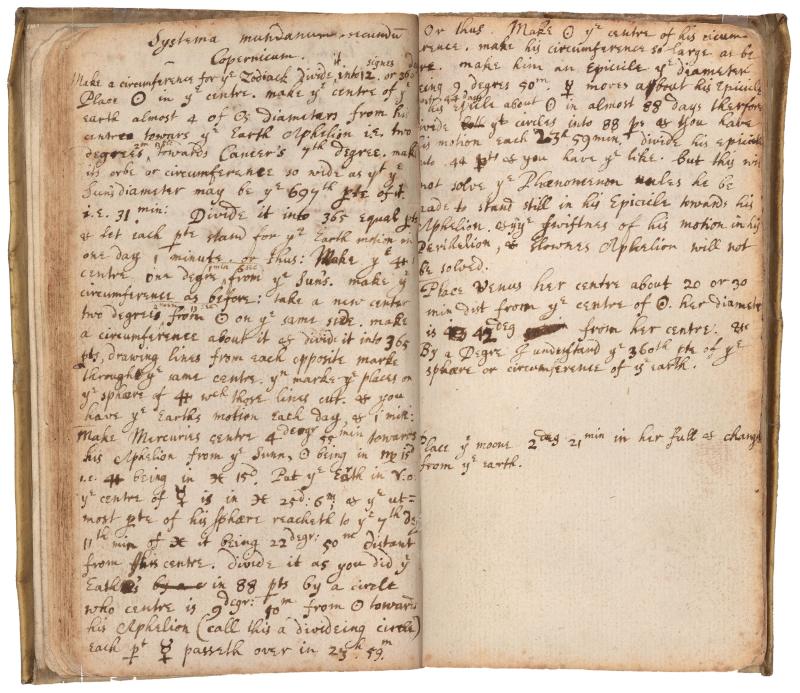 Systema mundanum secundū
Copernicum.
Make a circumference for yᵉ Zodiack Divide it into 12 signes or 360
Place ☉ in yᵉ centre. make yᵉ centre of yᵉ
earth almost 4 of ☉s diameters from his
centre towars yᵉ Earth Aphelion i.e. two
degrees, towards Cancer's 7th degree. make
its orbe or circumference so wide as yᵗ yᵉ
Suns diameter may be yᵉ 697th pte of it.
i.e. 31 min: Divide it into 365 equal pts
& let each pte stand for yᵉ Earth motion in
one day 1 minute. or thus: Make yᵉ
centre one degre from yᵉ Suns. make yᵉ
circumference as before: take a new center
two degrees from ☉ on yᵉ same side. make
a circumference about it & divide it into 365
pts, drawing lines from each opposite marke
through yᵉ same centre. yⁿ marke yᵉ places on
yᵉ sphære of wᶜʰ those lines cut. & you
have yᵉ Earths motion each day & 1 min:
Make Mercuries centre 4 degr 55 min towards
his Aphelion from yᵉ Sunn, ☉ being in ♍ 15ᵈ
i.e. being in ♓ 15ᵈ. Put yᵉ Earth in ♈: 0.
yᵉ centre of ☿ is in ♓ 25ᵈ: 6ᵐ; & yᵉ ut=
most pte of his sphære reacheth to yᵉ 7th de
11th min of ♓ it being 22 degr: 50ᵐ distant
from his centre. divide it as you did yᵉ
Earth's in 88 pts by a circle
who centre is 9 degr: 50ᵐ from ☉ towards
his Aphelion (call this a divideing circle)
Each pᵗ ☿ passeth over in 23ʰ. 59ᵐ
Or thus. Make ☉ yᵉ centre of his circum-
rence. make his circumference so large as be
re. make him an Epicicle yᵉ diameter
eing 9 degres 50ᵐ. ☿ moves about his Epicicle
his Epicle about ☉ in almost 88 days therfore
vide yᵗ circles into 88 pts & you have
is motion each 23ʰ 59 min. divide his epicicle
into 44 pts & you have yᵉ like. But this will
not solve yᵉ Phænomenon unles he be
made to stand still in his Epicicle towards his
Aphelion, swiftnes of his motion in his
Perihelion, & slownes Aphelion will not
be solved.
Place Venus her centre about 20 or 30
min dist from yᵉ centre of ☉. her diameter
is 42 deg from her centre. &c
By a Degre I understand yᵉ 360th pte of yᵉ
sphære or circumference of yᵉ earth.
Place yᵉ moone 2 deg 21 min in her full & change
from yᵉ earth.